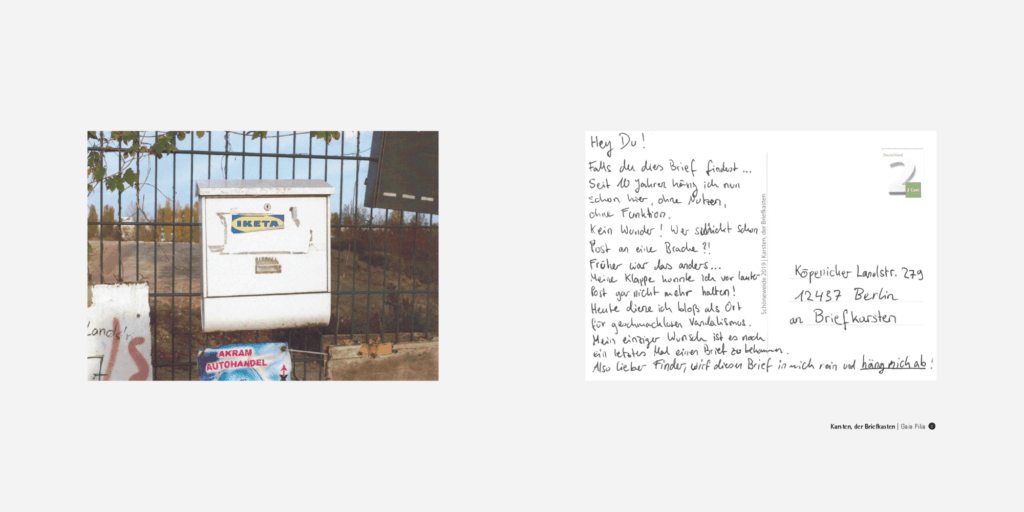 IKETA
Lands'r
AKRAM
AUTOHANDEL
Hey Du!
Falls du dies Brief findest...
Seit 10 Jahren häng ich nun
schon hier, ohne Nutzen,
ohne Funktion.
Kein Wunder! Wer schickt schon
Post an eine Brache?!
Früher war das anders...
Meine Klappe konnte ich vor lauter
Post gar nicht mehr halten!
Heute diene ich bloß als Ort
für geschmacklosen Vandalismus.
Mein einziger Wunsch ist es noch
ein letztes Mal einen Brief zu bekommen.
Also lieber Finder, wirf diesen Brief in mich rein und häng mich ab!
Schöneweide 2019 | Karsten, der Briefkasten
Deutschland
2
2 Euro
Köpenicker Landstr. 279
12437 Berlin
an Briefkarsten
Karsten, der Briefkasten | Gaia Pilia